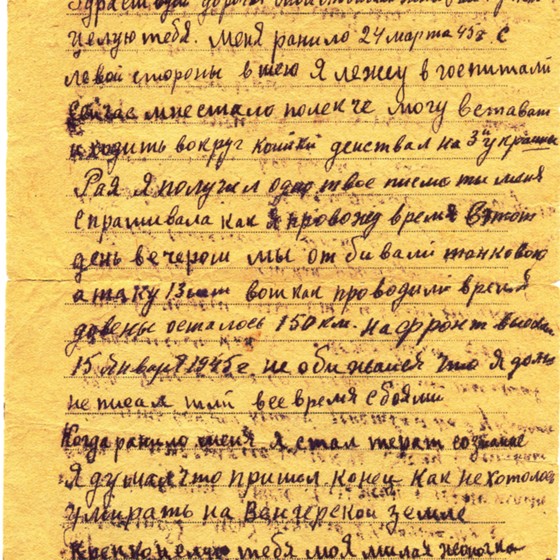 Здраствуй дорогая
целую тебя. Меня ранило 24 марта 45 г с
левой стороны в шею Я лежу в госпитали
сейчас мне стало полекче могу встават
и ходить вокруг койки действал на 3й украине
Рая Я получил одно твое писмо ты меня
спрашивала как Я провожу время в этот
день вечером мы отбивали танковою
атаку 13 шт вот как проводили время
до вены осталось 150 км. на фронт
15 Января 1945 г не обижайся что Я долго
не писал шли все время с боями
Когда ранило меня Я стал терат сознание
Я думал что пришол конец Как не хотолос
умирать на Венгерской земле
Крепко целую тебя моя милая